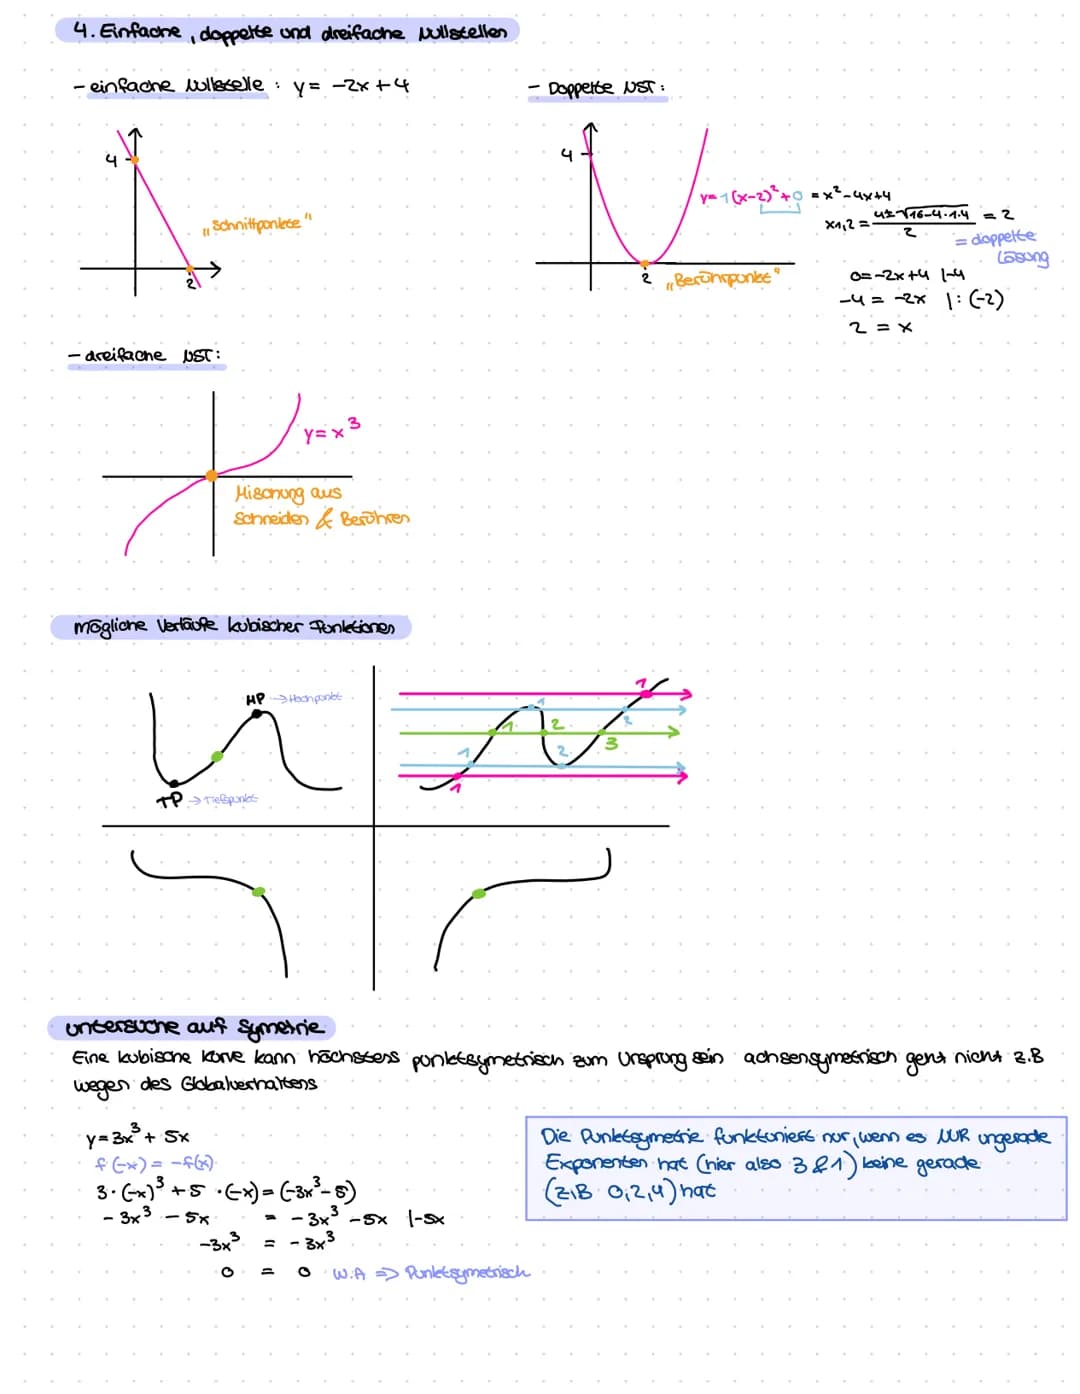 4. Einfache, doppelte und dreifache Nullstellen
- einfache Nullstelle : y = -2x + 4
4
2
„Schnittpunkte"
- Doppelte NST :
4
2
„Berührpunkt"
y = 1 (x-2)² + 0 = x² - 4x + 4
x1,2 = 4 ± √16 - 4 · 1 · 4 / 2 = 2
= doppelte
Lösung
0 = -2x + 4 | -4
-4 = -2x | : (-2)
2 = x
- dreifache NST :
y = x³
Mischung aus
Schneiden & Berühren
mögliche Verläufe kubischer Funktionen
HP → Hochpunkt
TP → Tiefpunkt
1
1
2
1 2 3
1 2
1
untersuche auf Symetrie
Eine kubische Kurve kann höchstens punktsymetrisch zum Ursprung sein achsensymetrisch geht nicht z.B
wegen des Globalverhaltens
y = 3x³ + 5x
f(-x) = -f(x)
3 · (-x)³ + 5 · (-x) = (-3x³ - 5)
- 3x³ - 5x = - 3x³ - 5x | -5x
-3x³ = - 3x³
0 = 0 W.A => Punktsymetrisch
Die Punktsymetrie funktioniert nur, wenn es NUR ungerade
Exponenten hat (hier also 3 & 1) keine gerade
(z.B 0,2,4) hat